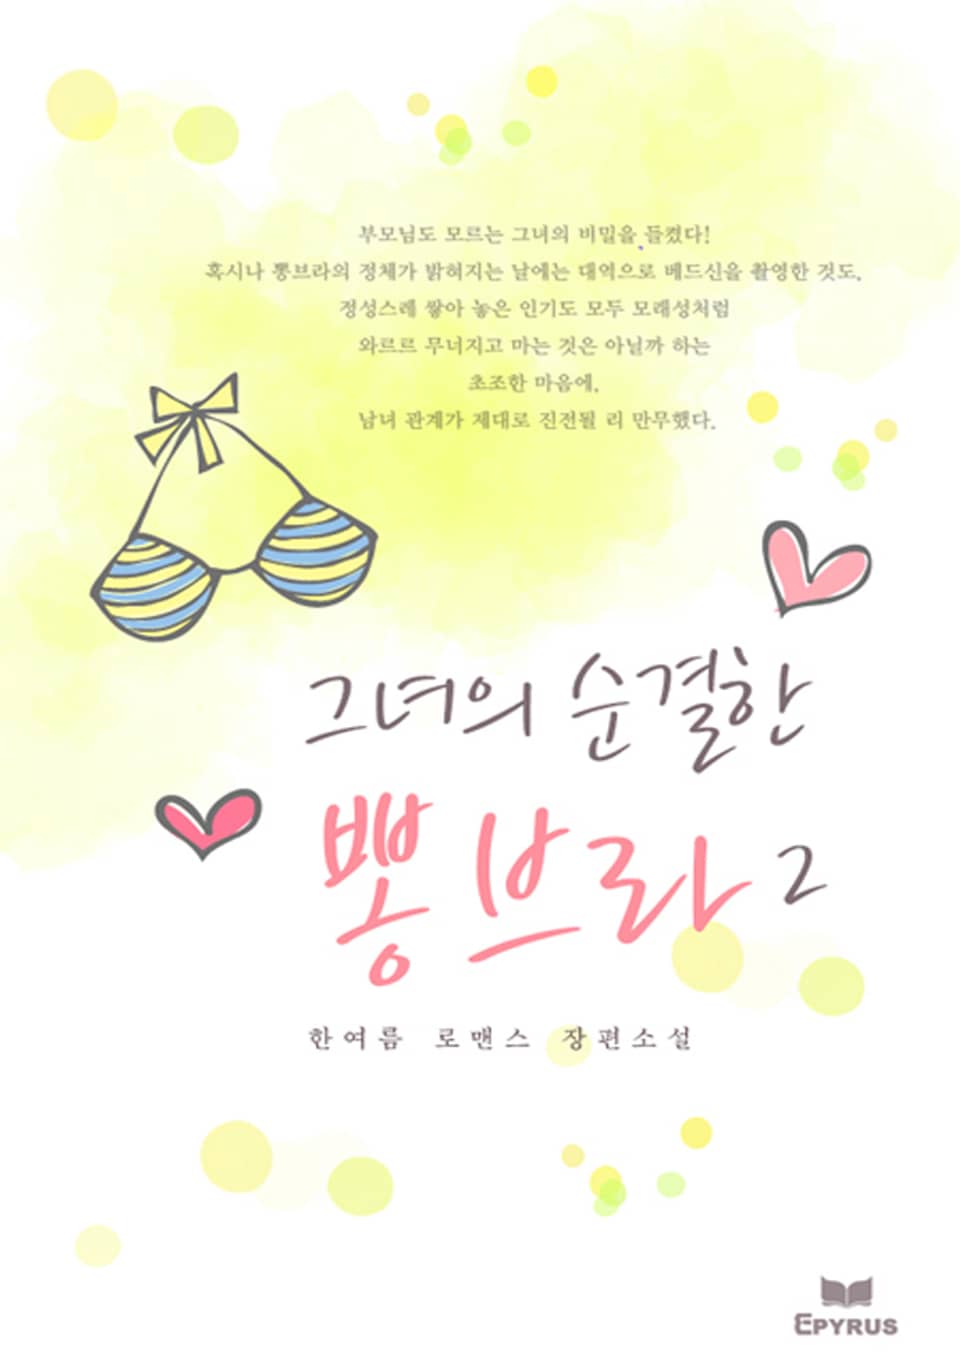 부모님도 모르는 그녀의 비밀을 들켰다!
혹시나 뽕브라의 정체가 밝혀지는 날에는 대역으로 베드신을 촬영한 것도,
정성스레 쌓아 놓은 인기도 모두 모래성처럼
와르르 무너지고 마는 것은 아닐까 하는
초조한 마음에,
남녀 관계가 제대로 진전될 리 만무했다.
그녀의 순결한
뽕브라 2
한여름 로맨스 장편소설
EPYRUS